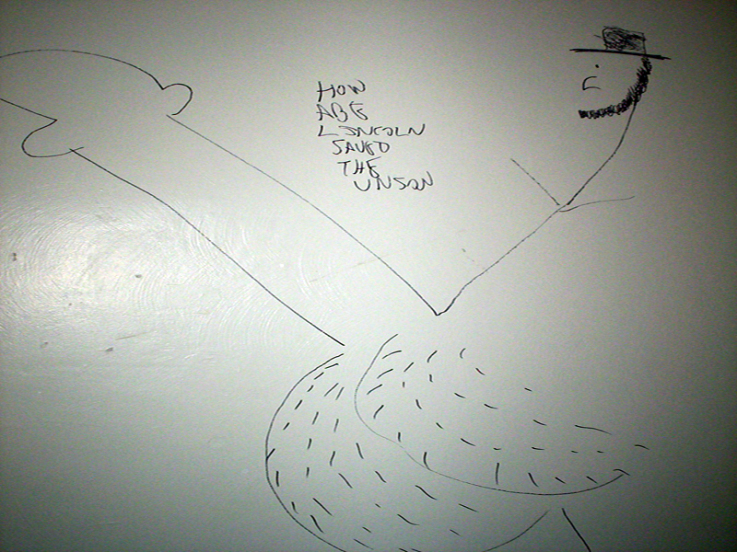 HOW
ABE
LINCOLN
SAVED
THE
UNION